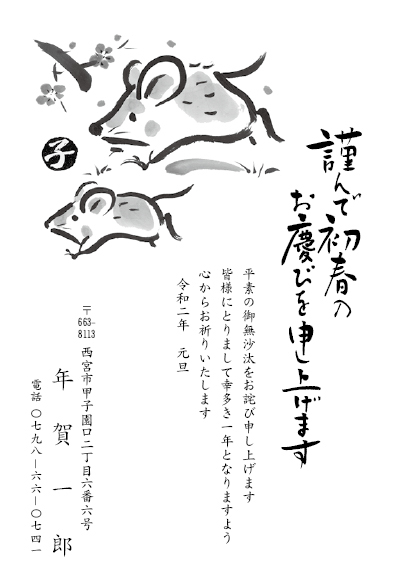 謹んで初春の
お慶びを申し上げます
平素の御無沙汰をお詫び申し上げます
皆様にとりまして幸多き一年となりますよう
心からお祈りいたします
令和二年 元旦
〒663-8113
西宮市甲子園口二丁目六番六号
年賀一郎
電話 〇七九八—六六—〇七四一
子